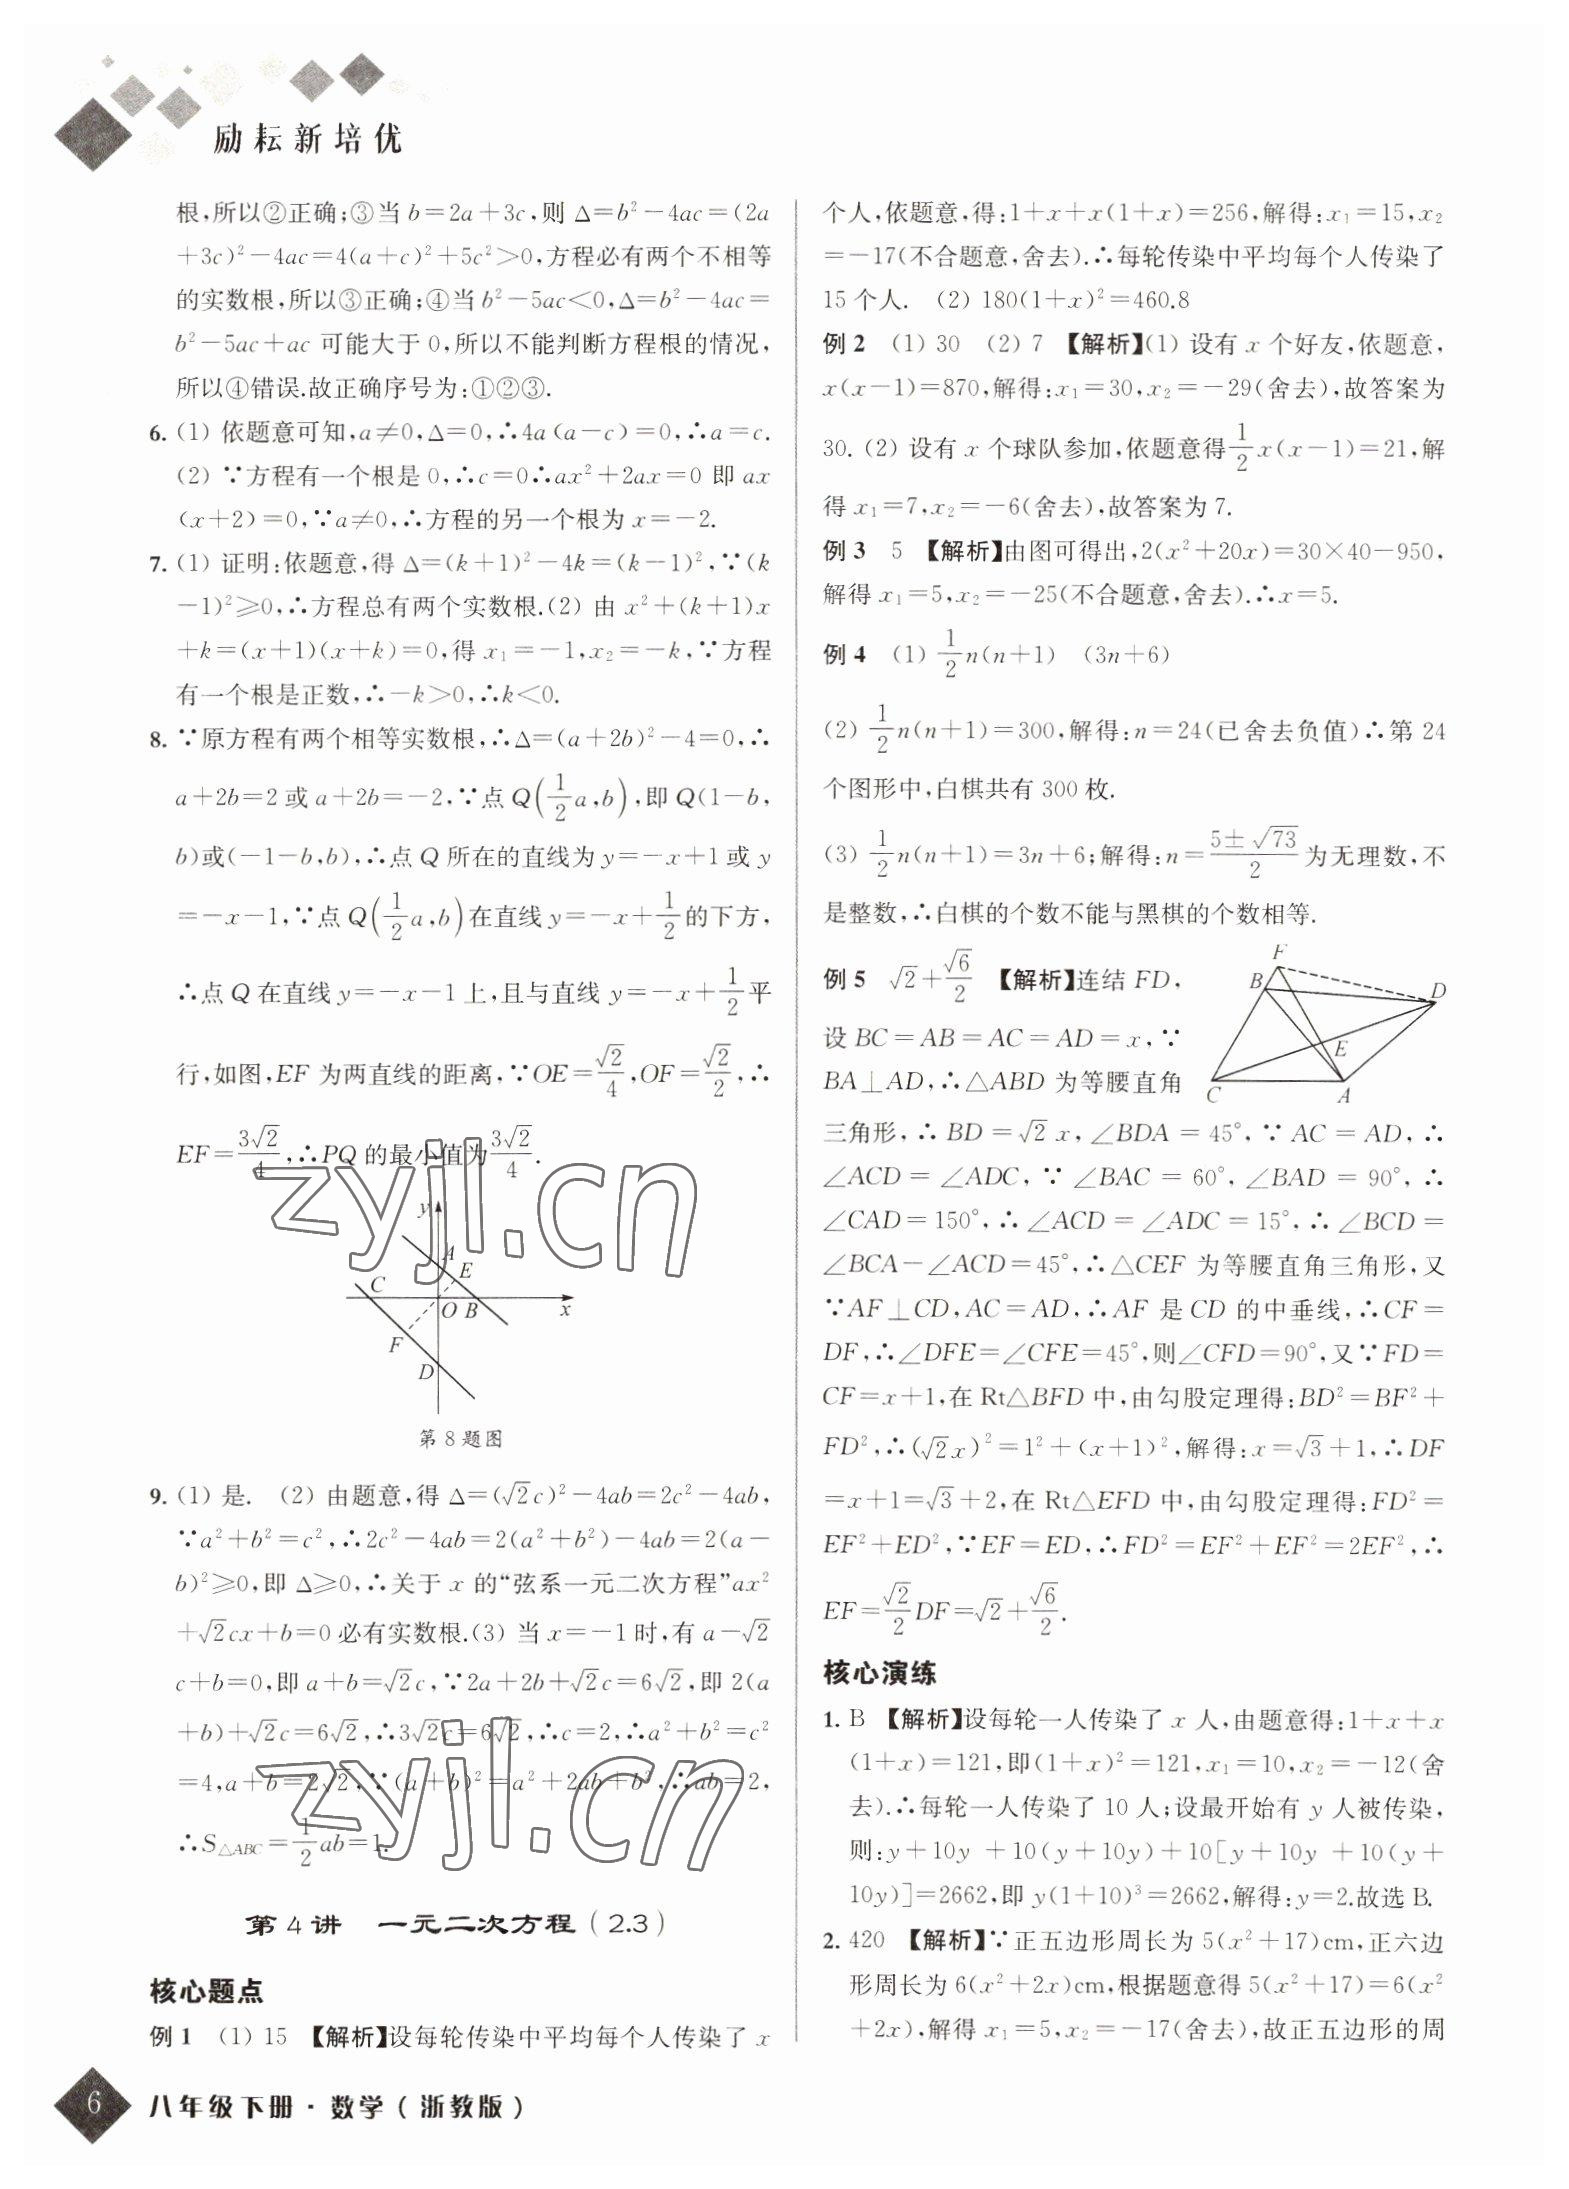 励耘新培优
根,所以②正确;③当b=2a+3c,则 Δ=b²-4ac=(2a
+3c)²-4ac=4(a+c)²+5c²>0,方程必有两个不相等
的实数根,所以③正确;④当 b²-5ac<0,Δ=b²-4ac=
b²-5ac+ac 可能大于0,所以不能判断方程根的情况,
所以④错误.故正确序号为:①②③.
6. (1) 依题意可知,a≠0,Δ=0,∴4a(a-c)=0,∴a=c.
(2) ∵方程有一个根是0,∴c=0∴ax²+2ax=0 即 ax
(x+2)=0,∵a≠0,∴方程的另一个根为 x=-2.
7. (1) 证明:依题意,得 Δ=(k+1)²-4k=(k-1)²,∵(k
-1)²≥0,∴方程总有两个实数根.(2) 由 x²+(k+1)x
+k=(x+1)(x+k)=0,得 x₁=-1,x₂=-k,∵方程
有一个根是正数,∴-k>0,∴k<0.
8. ∵原方程有两个相等实数根,∴Δ=(a+2b)²-4=0,∴
a+2b=2 或 a+2b=-2,∵点 Q(1/2 a,b),即 Q(1-b,
b)或(-1-b,b),∴点 Q 所在的直线为 y=-x+1 或 y
=-x-1,∵点 Q(1/2 a,b)在直线 y=-x+1/2 的下方,
∴点 Q 在直线 y=-x-1 上,且与直线 y=-x+1/2 平
行,如图,EF 为两直线的距离,∵OE=√2/4,OF=√2/2,∴
EF=3√2/4,∴PQ 的最小值为 3√2/4.
zyjl.cn
y
A
E
C
O B
x
F
D
第8题图
9. (1) 是. (2) 由题意,得 Δ=(√2c)²-4ab=2c²-4ab,
∵a²+b²=c²,∴2c²-4ab=2(a²+b²)-4ab=2(a-
b)²≥0,即 Δ≥0,∴关于 x 的“弦系一元二次方程”ax²
+√2cx+b=0 必有实数根.(3) 当 x=-1时,有 a-√2
c+b=0,即 a+b=√2c,∵2a+2b+√2c=6√2,即 2(a
+b)+√2c=6√2,∴3√2c=6√2,∴c=2,∴a²+b²=c²
=4,a+b=2√2,∵(a+b)²=a²+2ab+b²,∴ab=2,
∴S△ABC=1/2 ab=1.
zyjl.cn
第4讲 一元二次方程(2.3)
核心题点
例1 (1) 15 【解析】设每轮传染中平均每个人传染了 x
个人,依题意,得:1+x+x(1+x)=256,解得:x₁=15,x₂
=-17(不合题意,舍去).∴每轮传染中平均每个人传染了
15个人. (2) 180(1+x)²=460.8
例2 (1) 30 (2) 7 【解析】(1) 设有 x 个好友,依题意,
x(x-1)=870,解得:x₁=30,x₂=-29(舍去),故答案为
30. (2) 设有 x 个球队参加,依题意得 1/2 x(x-1)=21,解
得 x₁=7,x₂=-6(舍去),故答案为7.
例3 5 【解析】由图可得出,2(x²+20x)=30×40-950,
解得 x₁=5,x₂=-25(不合题意,舍去).∴x=5.
例4 (1) 1/2 n(n+1) (3n+6)
(2) 1/2 n(n+1)=300,解得:n=24(已舍去负值)∴第24
个图形中,白棋共有300枚.
(3) 1/2 n(n+1)=3n+6;解得:n=(5±√73)/2 为无理数,不
是整数,∴白棋的个数不能与黑棋的个数相等.
例5 √2+√6/2 【解析】连结 FD,
设 BC=AB=AC=AD=x,∵
BA⊥AD,∴△ABD 为等腰直角
F
B
D
E
C
A
三角形,∴BD=√2x,∠BDA=45°,∵AC=AD,∴
∠ACD=∠ADC,∵∠BAC=60°,∠BAD=90°,∴
∠CAD=150°,∴∠ACD=∠ADC=15°,∴∠BCD=
∠BCA-∠ACD=45°,∴△CEF 为等腰直角三角形,又
∵AF⊥CD,AC=AD,∴AF 是 CD 的中垂线,∴CF=
DF,∴∠DFE=∠CFE=45°,则∠CFD=90°,又∵FD=
CF=x+1,在 Rt△BFD 中,由勾股定理得:BD²=BF²+
FD²,∴(√2x)²=1²+(x+1)²,解得:x=√3+1,∴DF
=x+1=√3+2,在 Rt△EFD 中,由勾股定理得:FD²=
EF²+ED²,∵EF=ED,∴FD²=EF²+EF²=2EF²,∴
EF=√2/2 DF=√2+√6/2.
核心演练
1. B 【解析】设每轮一人传染了 x 人,由题意得:1+x+x
(1+x)=121,即(1+x)²=121,x₁=10,x₂=-12(舍
去).∴每轮一人传染了10人;设最开始有 y 人被传染,
则:y+10y +10(y+10y)+10[y+10y +10(y+
10y)]=2662,即 y(1+10)³=2662,解得:y=2.故选B.
2. 420 【解析】∵正五边形周长为 5(x²+17)cm,正六边
形周长为 6(x²+2x)cm,根据题意得 5(x²+17)=6(x²
+2x),解得 x₁=5,x₂=-17(舍去),故正五边形的周
6 八年级下册·数学(浙教版)